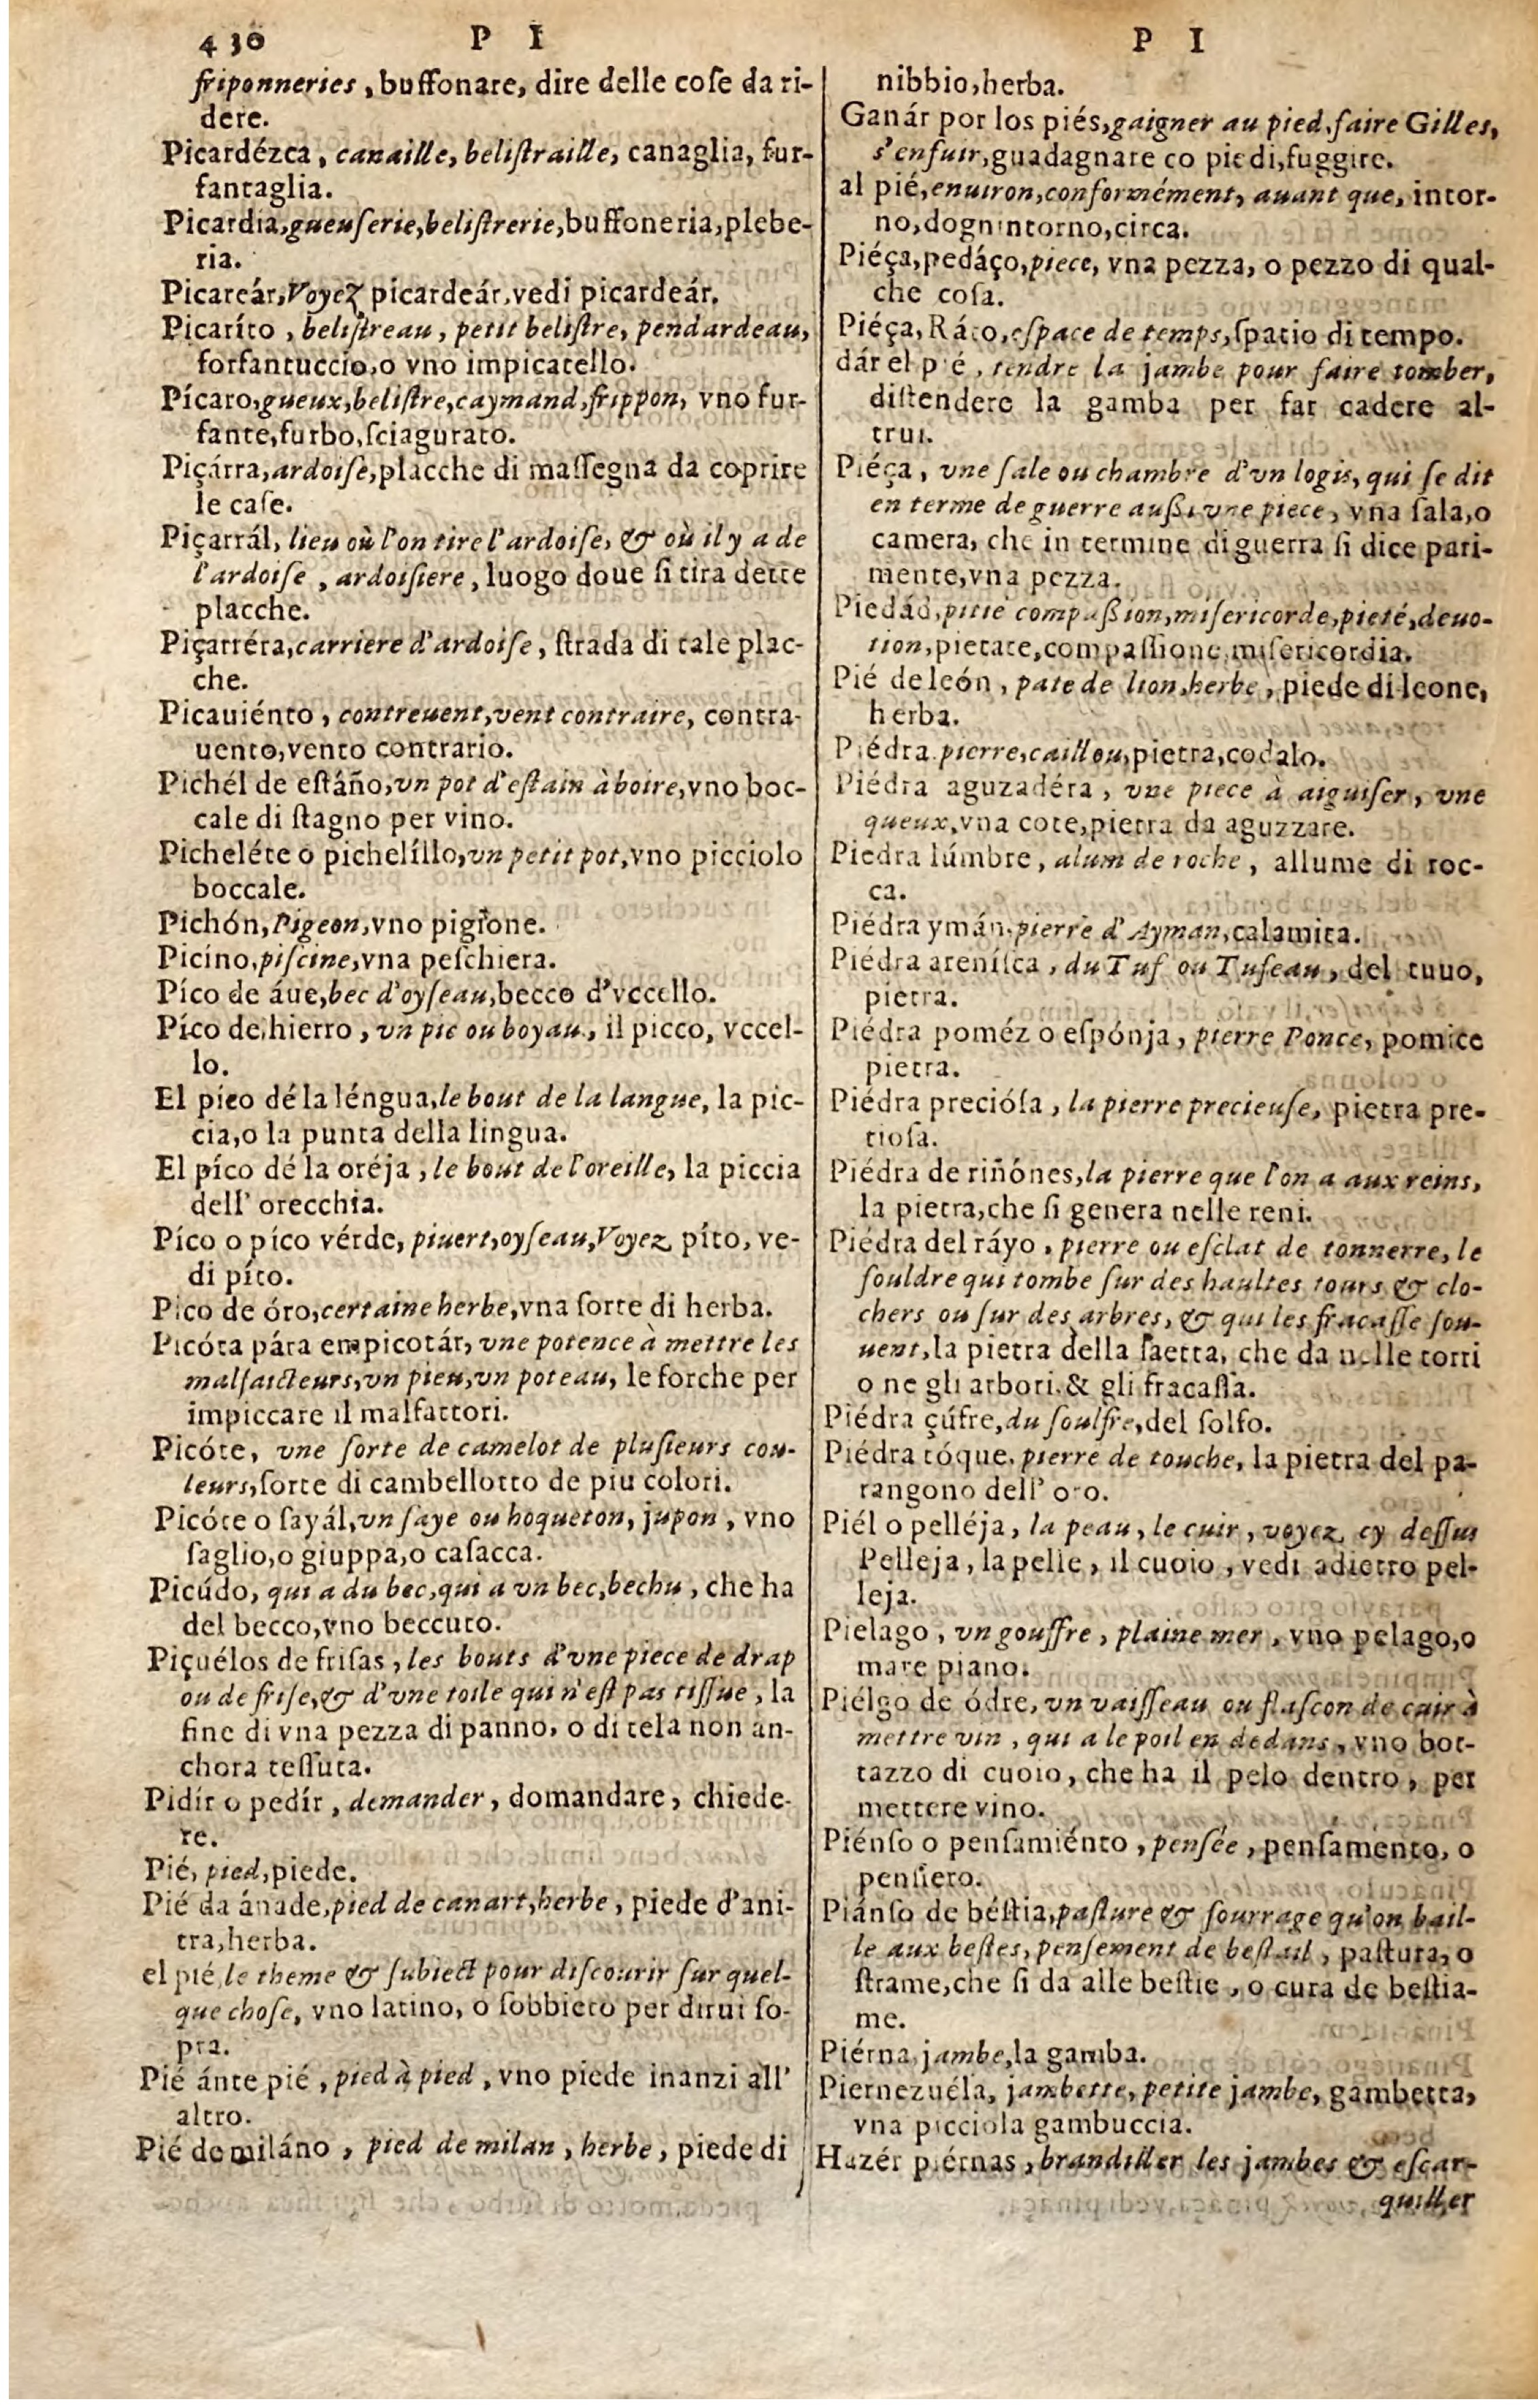 430 P I
friponneries, buffonare, dire delle coſe da ri-
dere.
Picardézca, canaille, beliſtraille, canaglia, fur-
fantaglia.
Picardia, gueuſerie, beliſtrerie, buffoneria, plebe-
ria.
Picareár, Voyez picardeár, vedi piçardeár.
Picaríto, beliſtreau, petit beliſtre, pendardeau,
forfantuccio, o vno impicatello.
Pícaro, gueux, beliſtre, caymand, frippon, vno fur-
fante, furbo, ſciagurato.
Piçárra, ardoiſe, placche di maſſegna da coprire
le caſe.
Piçarrál, lieu où l'on tire l'ardoiſe, & où il y a de
l'ardoiſe, ardoiſiere, luogo doue ſi tira dette
placche.
Piçarréra, carriere d'ardoiſe, ſtrada di tale plac-
che.
Picauiénto, contreuent, vent contraire, contra-
uento, vento contrario.
Pichél de eſtáño, vn pot d'eſtain à boire, vno boc-
cale di ſtagno per vino.
Picheléte o pichelíllo, vn petit pot, vno picciolo
boccale.
Pichón, Pigeon, vno pigione.
Picíno, piſcine, vna peſchiera.
Píco de áue, bec d'oyſeau, becco d'vccello.
Píco de hierro, vn pic ou boyau, il picco, vccel-
lo.
El pico dé la léngua, le bout de la langue, la pic-
cia, o la punta della lingua.
El píco dé la oréja, le bout de l'oreille, la piccia
dell' orecchia.
Píco o píco vérde, piuert, oyſeau, Voyez píto, ve-
di píto.
Pico de óro, certaine herbe, vna ſorte di herba.
Picóta pára empicotár, vne potence à mettre les
malfaicteurs, vn pieu, vn poteau, le forche per
impiccare il malfattori.
Picóte, vne ſorte de camelot de pluſieurs cou-
leurs, ſorte di cambellotto de piu colori.
Picóte o ſayál, vn ſaye ou hoqueton, jupon, vno
ſaglio, o giuppa, o caſacca.
Picúdo, qui a du bec, qui a vn bec, bechu, che ha
del becco, vno beccuto.
Piçuélos de friſas, les bouts d'vne piece de drap
ou de friſe, & d'vne toile qui n'eſt pas tiſſue, la
fine di vna pezza di panno, o di tela non an-
chora teſſuta.
Pidír o pedír, demander, domandare, chiede-
re.
Pié, pied, piede.
Pié da ánade, pied de canart, herbe, piede d'ani-
tra, herba.
el pié, le theme & ſubiect pour diſcourir ſur quel-
que choſe, vno latino, o ſobbieto per dirui ſo-
pra.
Pié ánte pié, pied à pied, vno piede inanzi all'
altro.
Pié de miláno, pied de milan, herbe, piede di
P I
nibbio, herba.
Ganár por los piés, gaigner au pied, faire Gilles,
s'enfuir, guadagnare co piedi, fuggire.
al pié, enuiron, conformément, auant que, intor-
no, dognintorno, circa.
Piéça, pedáço, piece, vna pezza, o pezzo di qual-
che coſa.
Piéça, Ráto, eſpace de temps, ſpatio di tempo.
dár el pié, tendre la jambe pour faire tomber,
diſtendere la gamba per far cadere al-
trui.
Piéça, vne ſale ou chambre d'vn logis, qui ſe dit
en terme de guerre außi vne piece, vna ſala, o
camera, che in termine di guerra ſi dice pari-
mente, vna pezza.
Piedád, pitié compaßion, miſericorde, pieté, deuo-
tion, pietate, compaſſione, miſericordia.
Pié de león, pate de lion, herbe, piede di leone,
herba.
Piédra, pierre, caillou, pietra, codalo.
Piédra aguzadéra, vne piece à aiguiſer, vne
queux, vna cote, pietra da aguzzare.
Piedra lúmbre, alum de roche, allume di roc-
ca.
Piédra ymán, pierre d'Ayman, calamita.
Piédra areníſca, du Tuf ou Tufeau, del tuuo,
pietra.
Piédra poméz o eſpónja, pierre Ponce, pomice
pietra.
Piédra precióſa, la pierre precieuſe, pietra pre-
tioſa.
Piédra de riñónes, la pierre que l'on a aux reins,
la pietra, che ſi genera nelle reni.
Piédra del ráyo, pierre ou eſclat de tonnerre, le
fouldre qui tombe ſur des haultes tours & clo-
chers ou ſur des arbres, & qui les fracaſſe ſou-
uent, la pietra della ſaetta, che da nelle torri
o ne gli arbori, & gli fracaſſa.
Piédra çúfre, du ſoulfre, del ſolfo.
Piédra tóque, pierre de touche, la pietra del pa-
rangono dell' oro.
Piél o pelléja, la peau, le cuir, voyez cy deſſus
Pelleja, la pelle, il cuoio, vedi adietro pel-
leja.
Pielago, vn gouffre, plaine mer, vno pelago, o
mare piano.
Piélgo de ódre, vn vaiſſeau ou flaſcon de cuir à
mettre vin, qui a le poil en dedans, vno bot-
tazzo di cuoio, che ha il pelo dentro, per
mettere vino.
Piénſo o penſamiénto, penſée, penſamento, o
penſiero.
Piánſo de béſtia, paſture & fourrage qu'on bail-
le aux beſtes, penſement de beſtail, paſtura, o
ſtrame, che ſi da alle beſtie, o cura de beſtia-
me.
Piérna, jambe, la gamba.
Piernezuéla, jambette, petite jambe, gambetta,
vna picciola gambuccia.
Hazér piérnas, brandiller les jambes & eſcar-
quiller